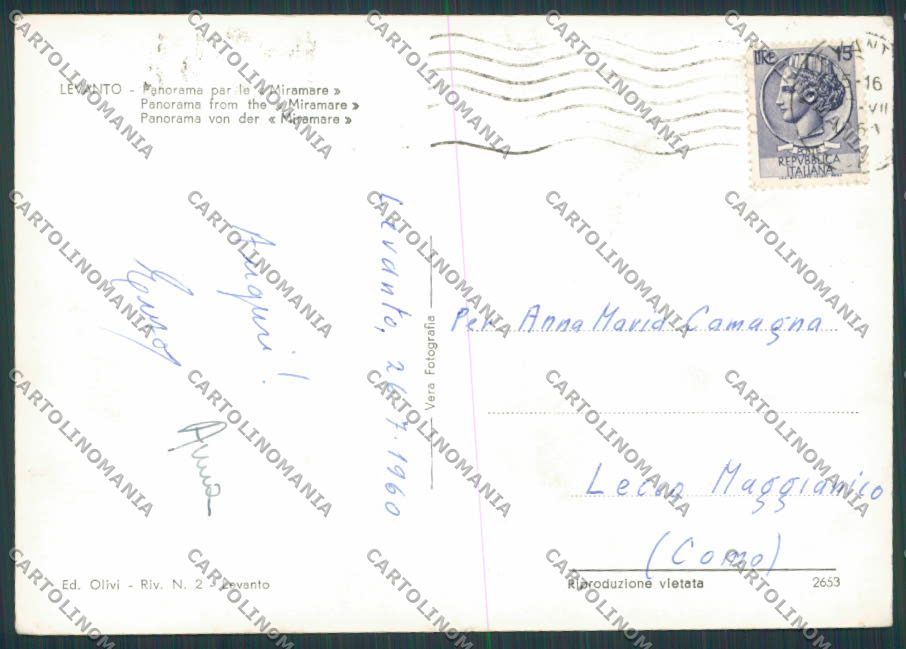 LEVANTO - Panorama par le « Miramare »
Panorama from the « Miramare »
Panorama von der « Miramare »
LIRE 15
POSTE
REPVBBLICA
ITALIANA
Levanto, 26.7.1960
Auguri!
Anna
Vera Fotografia
Per Anna Maria Camagna
Lecco Maggianico
(Como)
Ed. Olivi - Riv. N. 2 - Levanto
Riproduzione vietata
2653
CARTOLINOMANIA